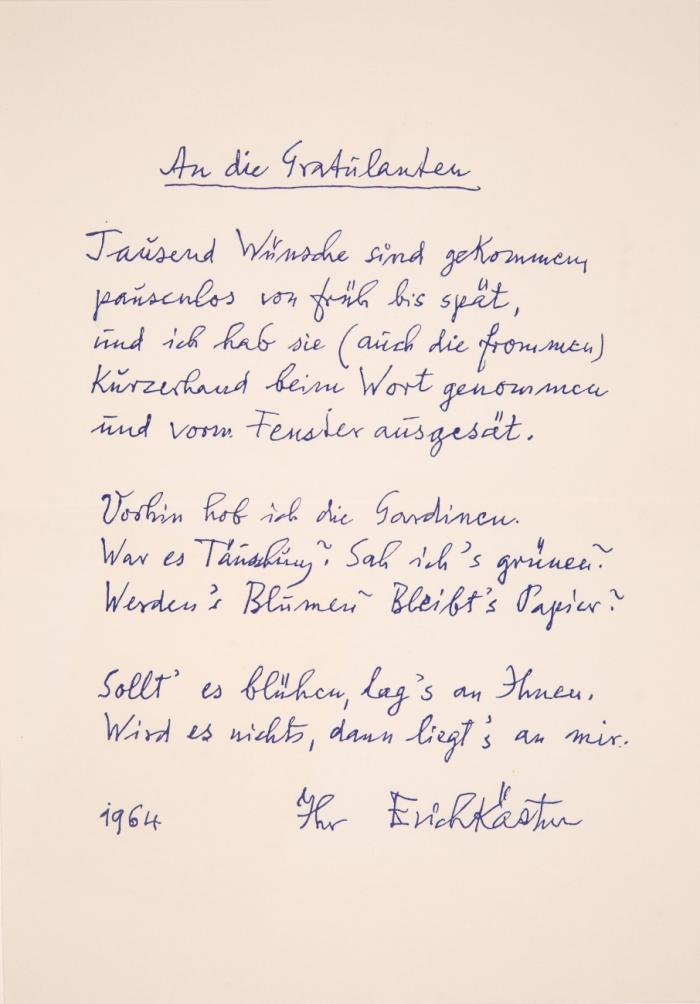 An die Gratulanten
Tausend Wünsche sind gekommen,
pausenlos von früh bis spät,
und ich hab sie (auch die frommen)
Kurzerhand beim Wort genommen
und vorm Fenster ausgesät.
Vorhin hob ich die Gardinen.
War es Täuschung? Sah ich's grünen?
Werden's Blumen? Bleibt's Papier?
Sollt' es blühen, lag's an Ihnen.
Wird es nichts, dann liegt's an mir.
1964 Ihr Erich Kästner